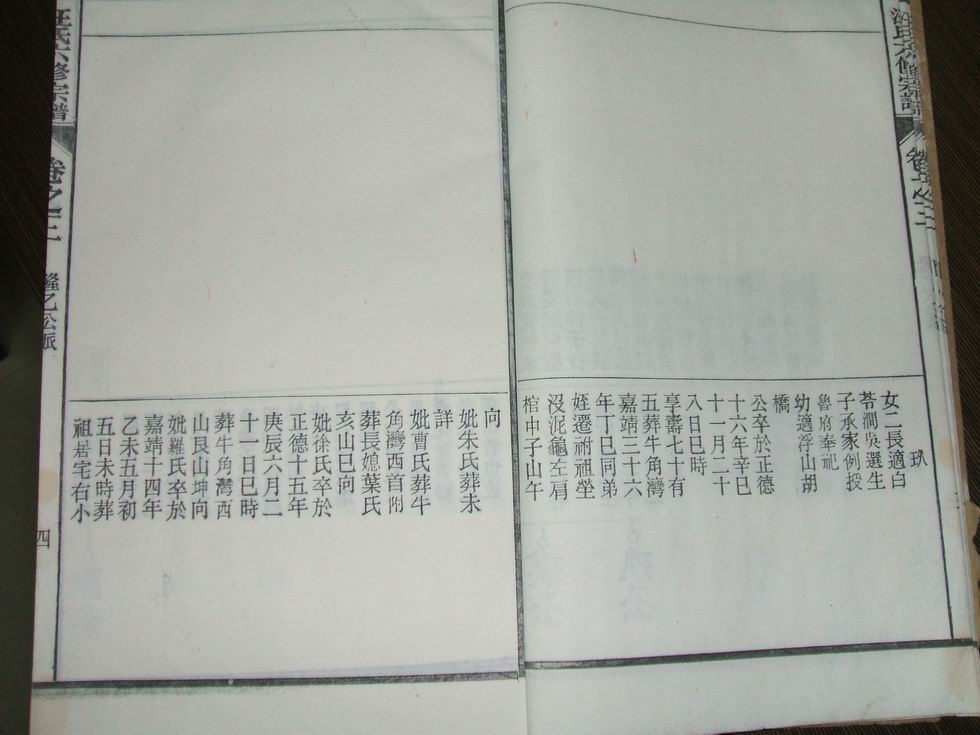 汪氏六修宗譜
卷之三
玖
女二長適白
荅澗吳選生
子承家例授
魯府奉祀
幼適浮山胡
橋
公卒於正德
十六年辛巳
十一月二十
八日巳時
享壽七十有
五葬牛角灣
嘉靖三十六
年丁巳同弟
姪遷祔祖塋
沒泥龜左肩
棺中子山午
向
妣朱氏葬未
詳
妣曹氏葬牛
角灣西首附
葬長媳葉氏
亥山巳向
妣徐氏卒於
正德十五年
庚辰六月二
十一日巳時
葬牛角灣西
山艮山坤向
妣羅氏卒於
嘉靖十四年
乙未五月初
五日未時葬
祖居宅右小
汪氏六修宗譜
卷之三
隆乙公派
四